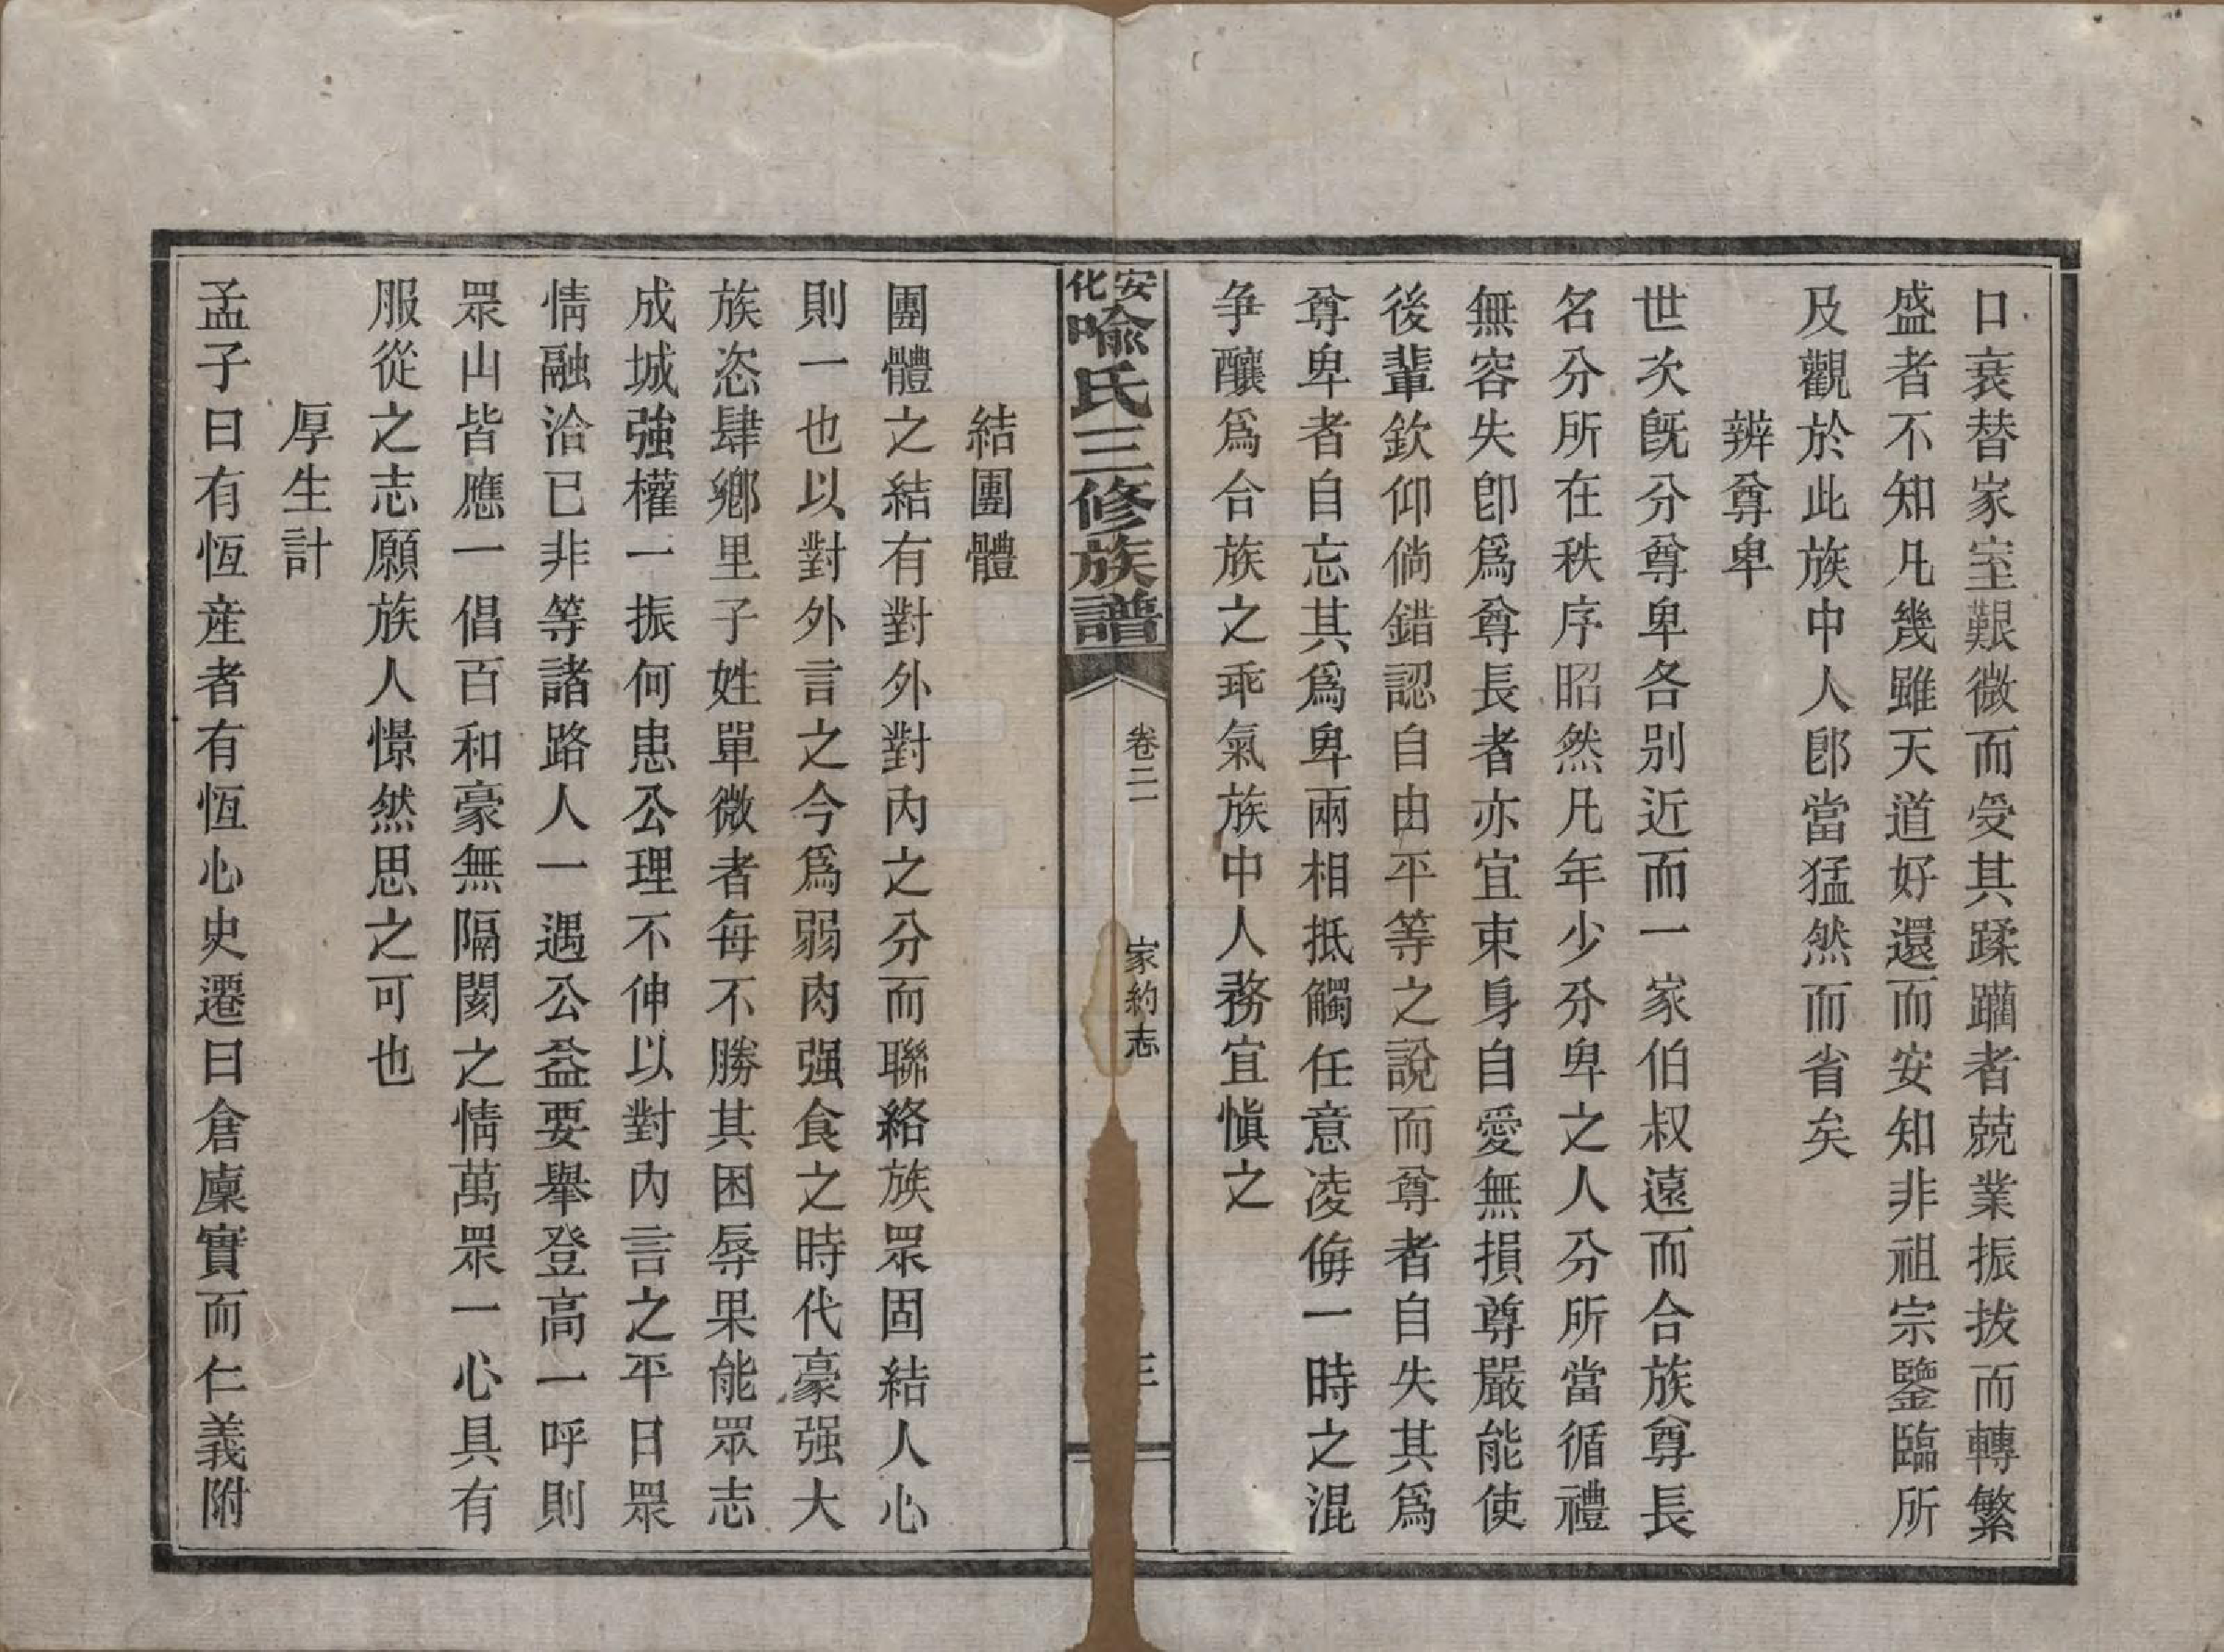 口衰替家室艱微而受其蹂躪者兢業振拔而轉繁
盛者不知凡幾雖天道好還而安知非祖宗鑒臨所
及觀於此族中人卽當猛然而省矣
辨尊卑
世次旣分尊卑各別近而一家伯叔遠而合族尊長
名分所在秩序昭然凡年少分卑之人分所當循禮
無容失卽爲尊長者亦宜束身自愛無損尊嚴能使
後輩欽仰倘錯認自由平等之說而尊者自失其爲
尊卑者自忘其爲卑兩相抵觸任意凌侮一時之混
争釀爲合族之乖氣族中人務宜愼之
安化喩氏三修族譜
卷二
家約志
三
結團體
團體之結有對外對內之分而聯絡族眾固結人心
則一也以對外言之今爲弱肉强食之時代豪强大
族恣肆鄉里子姓單微者每不勝其困辱果能眾志
成城強權一振何患公理不伸以對內言之平日眾
情融洽已非等諸路人一遇公益要舉登高一呼則
眾山皆應一倡百和豪無隔閡之情萬眾一心具有
服從之志願族人憬然思之可也
厚生計
孟子曰有恆産者有恆心史遷曰倉廩實而仁義附